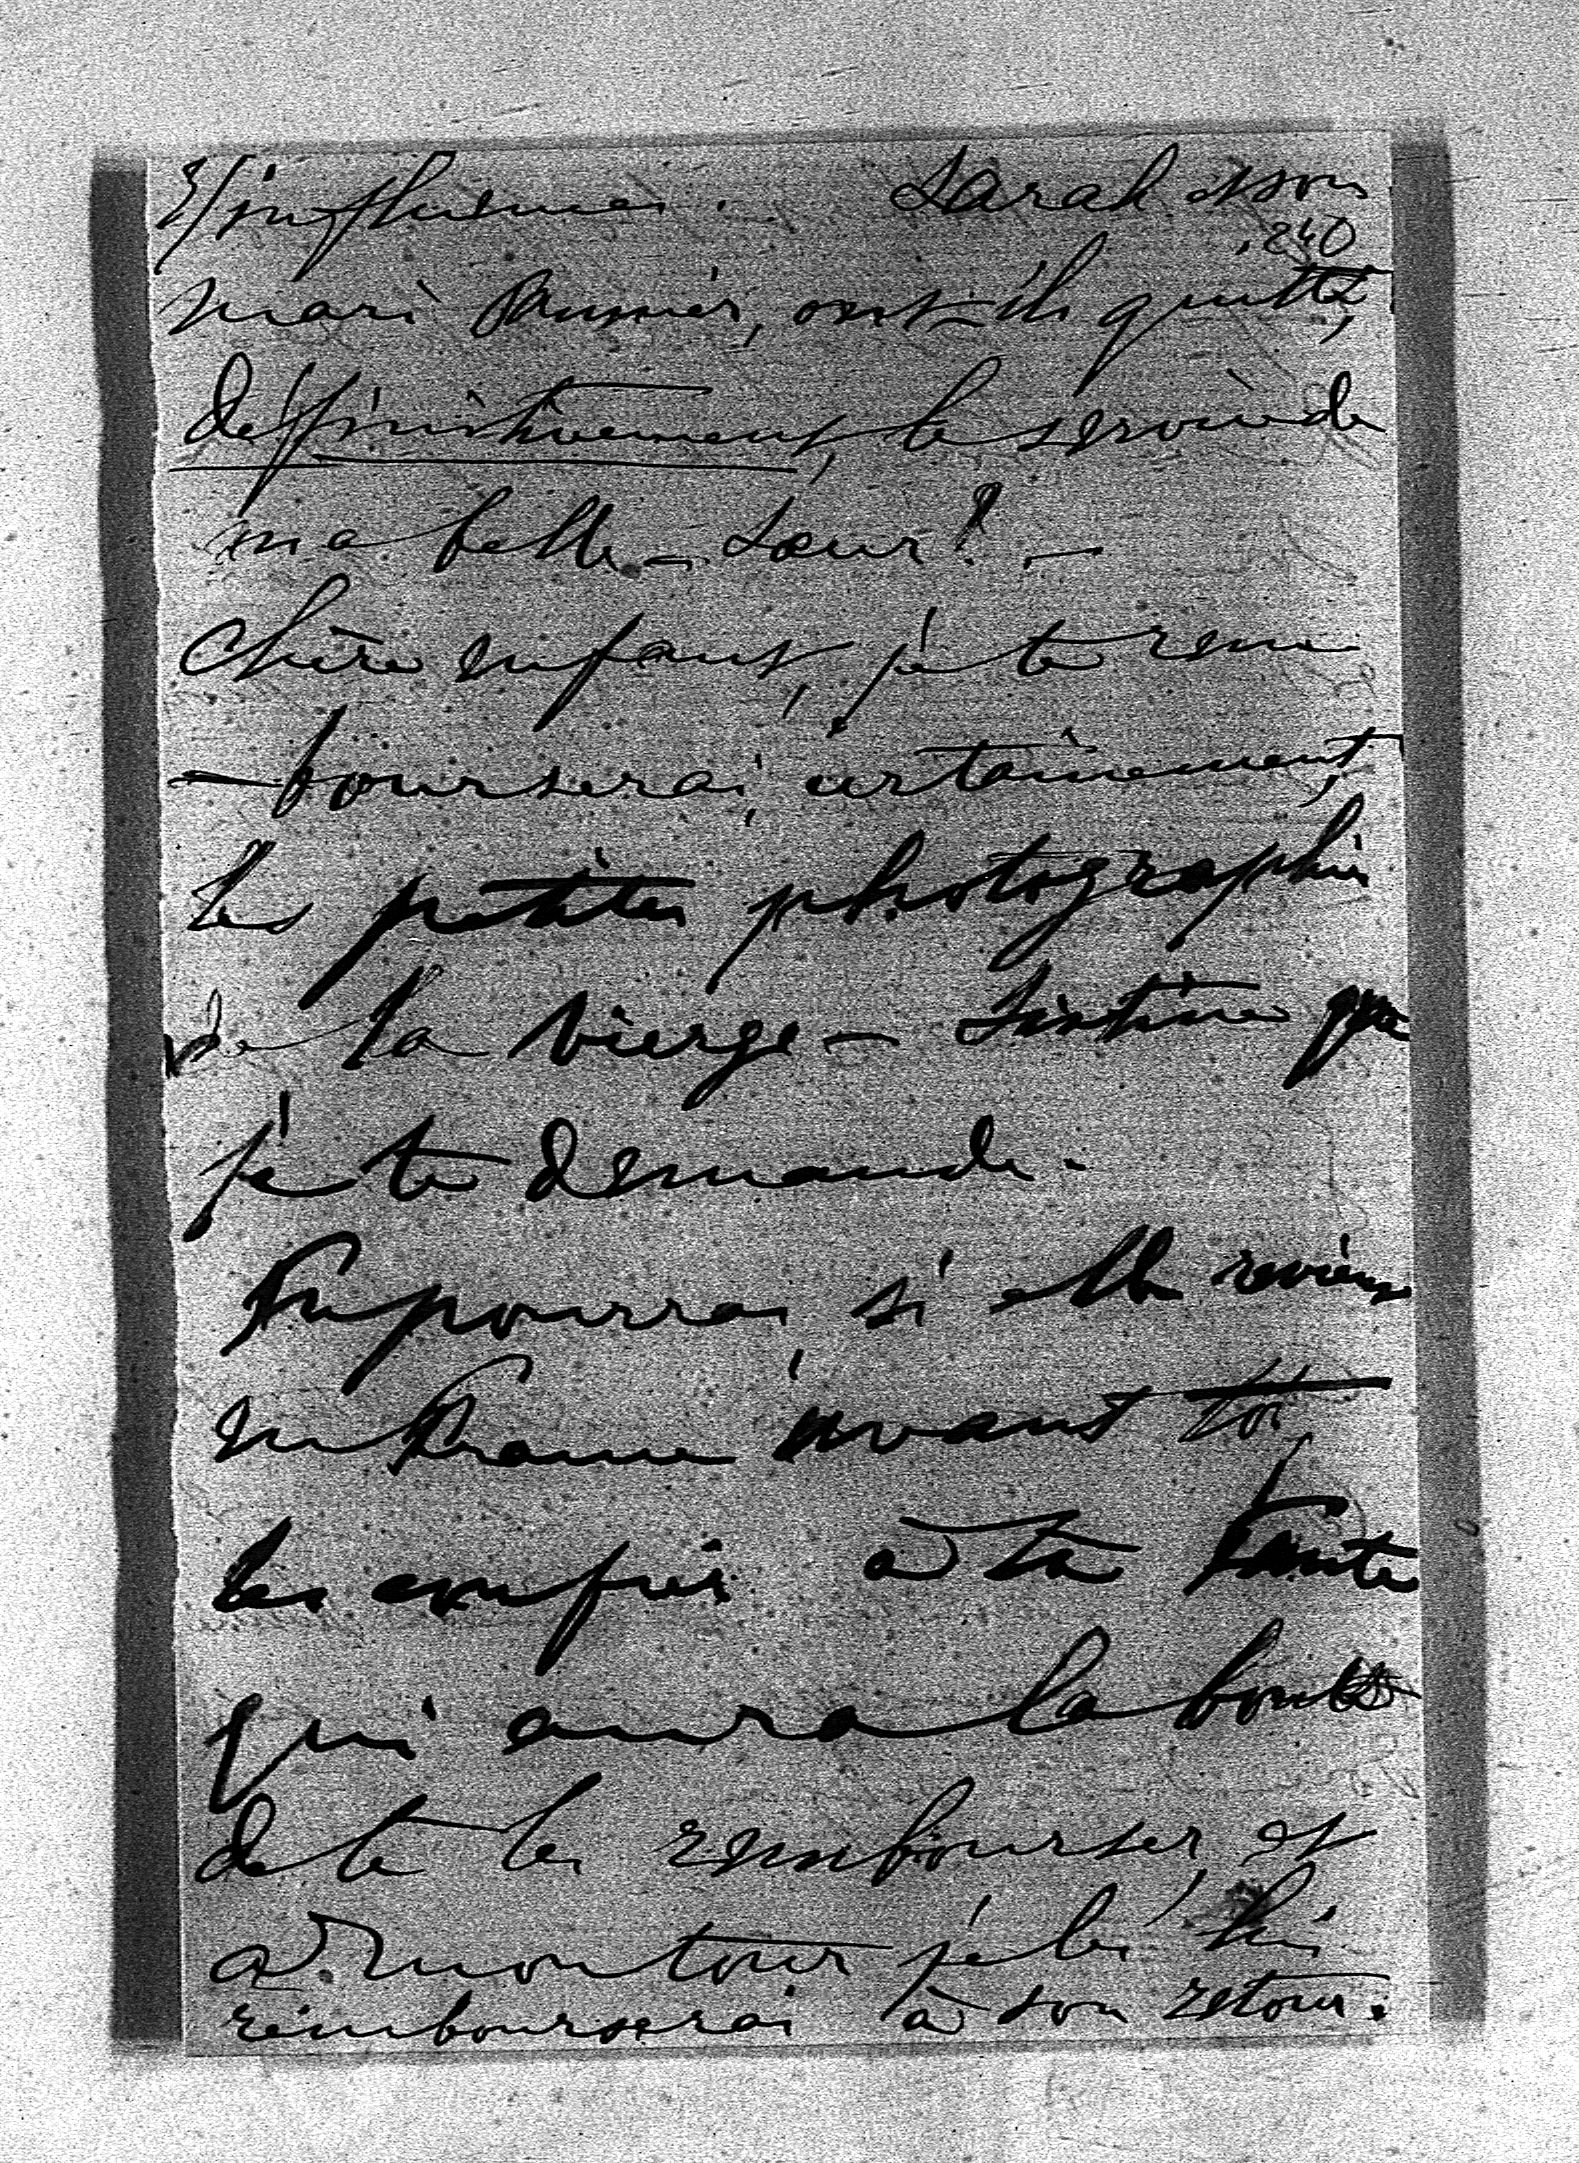 influences. Sarah et son
240
mari, ont-ils quitté,
définitivement, le service de
ma belle-sœur? —
Chère enfant, je te rem
-bourserai, certainement,
les petites photographies
de la Vierge-Sixtine que
je te demande.
Tu pourras si elle revient
en France avant toi
les confier à ta tante
qui aura la bonté
de te les rembourser, et
à mon tour je les lui
rembourserai à son retour.